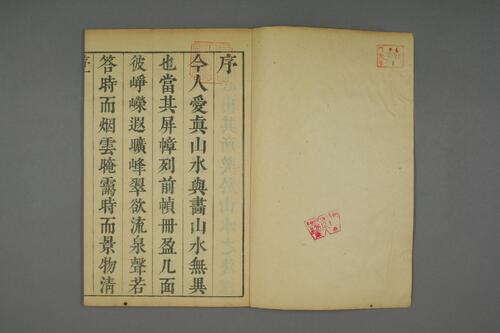 序
今人愛真山水與畫山水無異
也當其屏幛列前幀冊盈几面
彼崢嶸遐曠峰翠欲流泉聲若
答時而烟雲晻靄時而景物清
序一